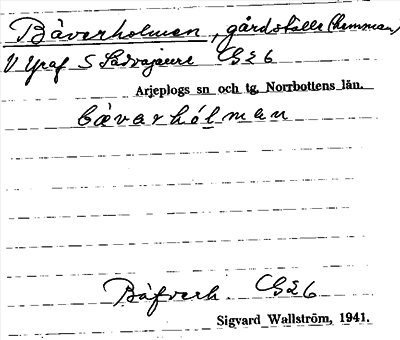 Bäverholmen, gårdställe (hemman)
V Yraf S Sädvajaure G 26
Arjeplogs sn och tg. Norrbottens län.
bævarhólman
Bäfverh. G 26
Sigvard Wallström, 1941.